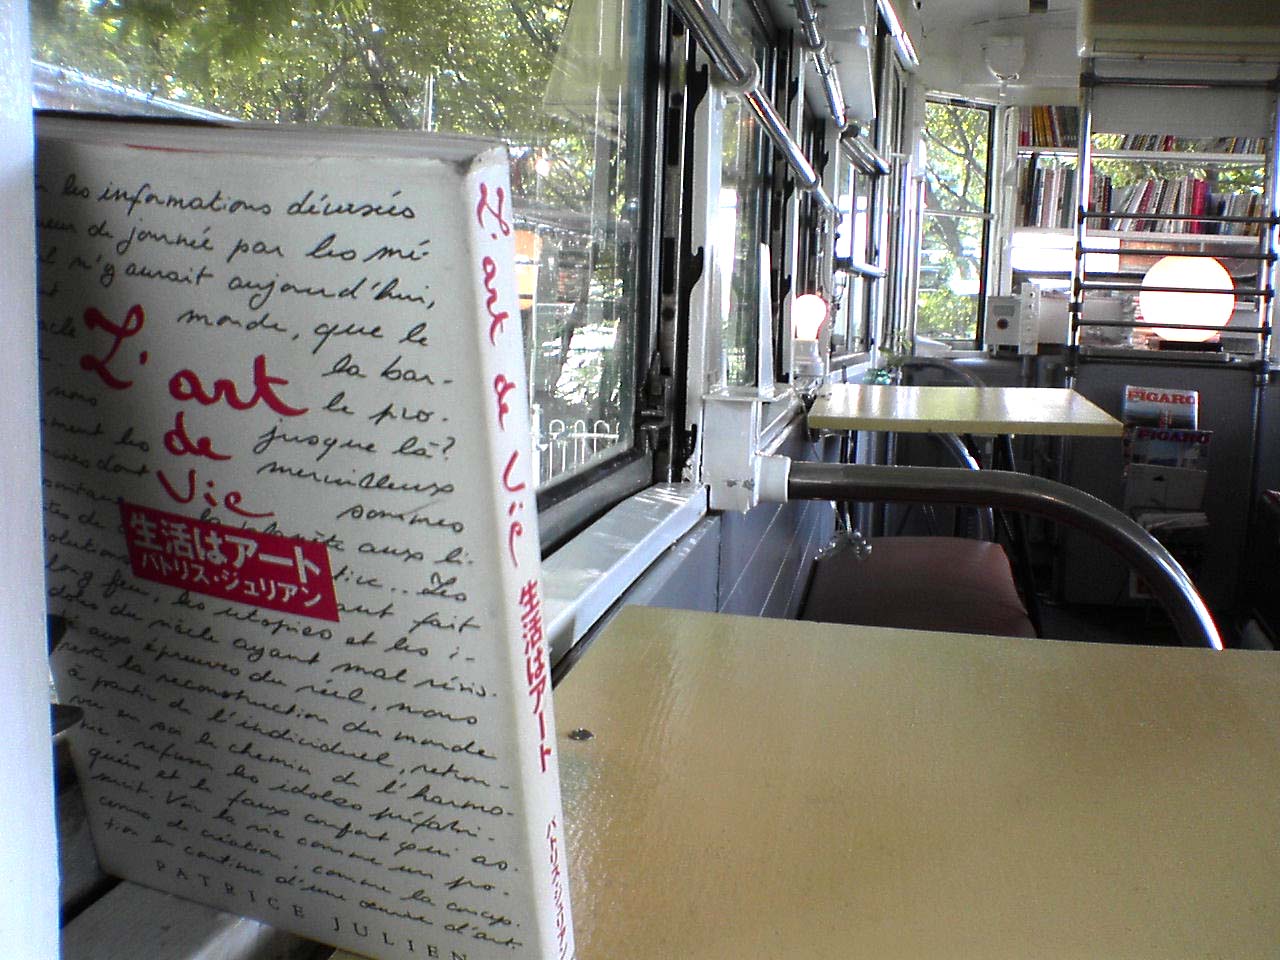 les informations diverses
de journée par les mé-
n'y aurait aujourd'hui,
monde, que le
la bar-
le pro.
jusque là?
merveilleux
sommes
aux li-
Les
fait
L'art
de
Vie
生活はアート
パトリス・ジュリアン
long feu, les utopies et les i-
du siècle ayant mal résis-
aux épreuves du réel, nous
la reconstruction du monde
à partir de l'individuel, retrou-
le chemin de l'harmo-
nie, refuser les idoles préfabri-
quées et le faux confort qui as-
Voir la vie comme un pro-
de création, comme la concep-
tion en continu d'une œuvre d'art.
PATRICE JULIEN
L'art de Vie 生活はアート パトリス・ジュリアン
FIGARO
FIGARO